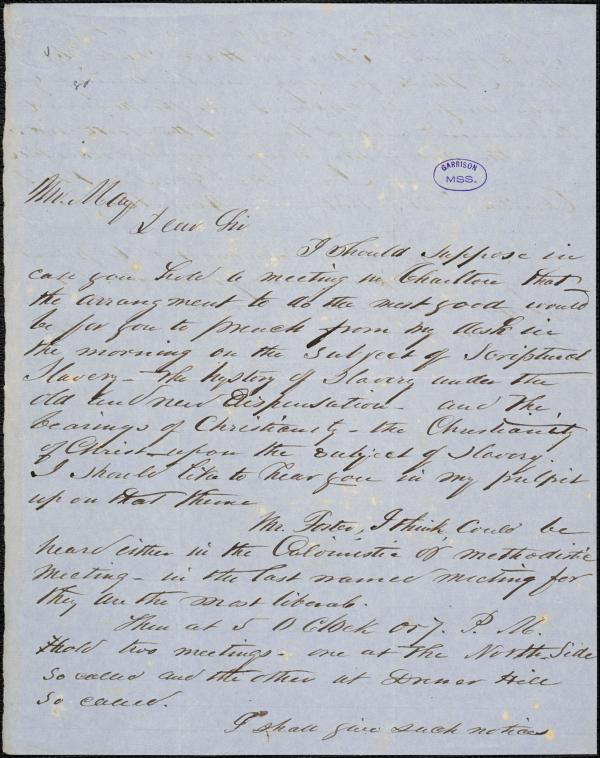 GARRISON
MSS.
Mr. May
Dear Sir
I should suppose in
case you hold a meeting in Charlton that
the arrangment to do the most good would
be for you to preach from my desk in
the morning on the subject of Scriptural
Slavery - The hystory of Slavery under the
old and new Dispensation - and the
bearings of Christianity - the Christianity
of Christ - upon the subject of Slavery.
I should like to hear you in my pulpit
up on that theme
Mr. Foster, I think, could be
heard either in the Calvinistic or methodistic
meeting - in the last named meeting for
they are the most liberal.
Then at 5 O Clock or 7. P. M.
hold two meetings - one at the North Side
so called and the other at Hill
so called.
I shall give such notices